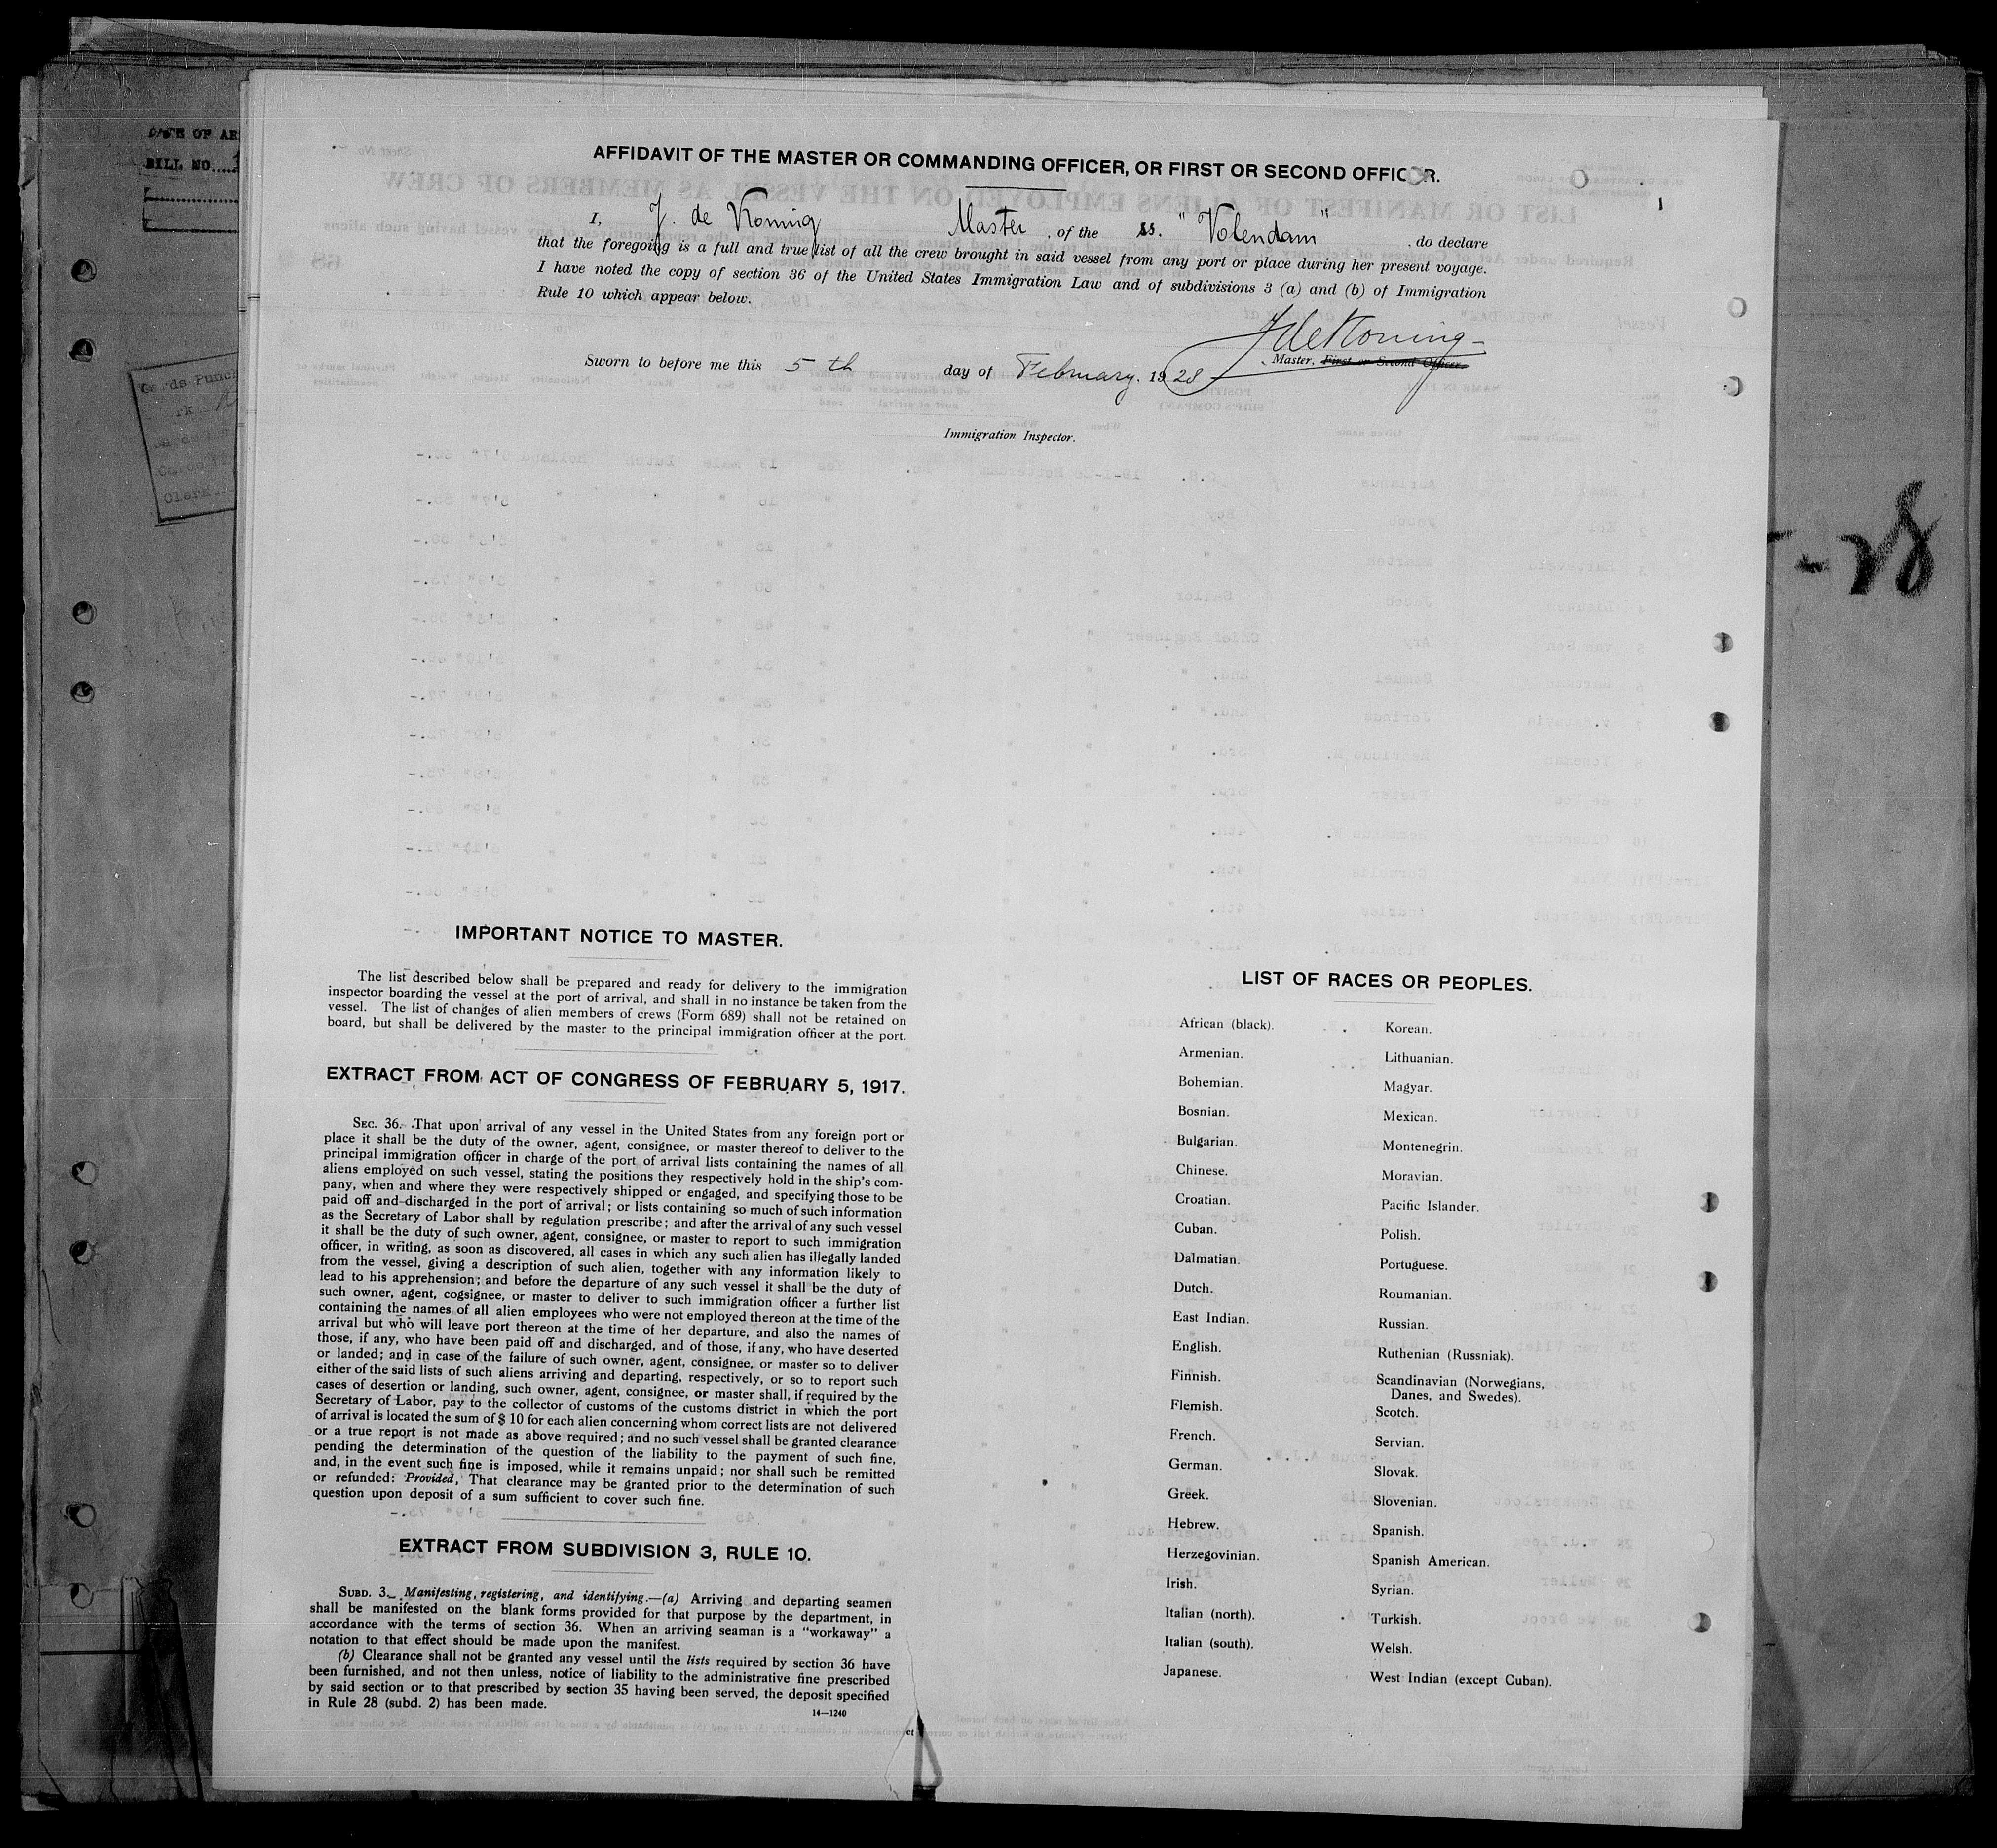 AFFIDAVIT OF THE MASTER OR COMMANDING OFFICER, OR FIRST OR SECOND OFFIC R.
I, J. de Koning Master, of the ss. "Volendam", do declare
that the foregoing is a full and true list of all the crew brought in said vessel from any port or place during her present voyage.
I have noted the copy of section 36 of the United States Immigration Law and of subdivisions 3 (a) and (b) of Immigration
Rule 10 which appear below.
JdeKoning
Master, First or Second Officer.
Sworn to before me this 5 th day of February. 1928
Immigration Inspector.
IMPORTANT NOTICE TO MASTER.
The list described below shall be prepared and ready for delivery to the immigration
inspector boarding the vessel at the port of arrival, and shall in no instance be taken from the
vessel. The list of changes of alien members of crews (Form 689) shall not be retained on
board, but shall be delivered by the master to the principal immigration officer at the port.
EXTRACT FROM ACT OF CONGRESS OF FEBRUARY 5, 1917.
SEC. 36. That upon arrival of any vessel in the United States from any foreign port or
place it shall be the duty of the owner, agent, consignee, or master thereof to deliver to the
principal immigration officer in charge of the port of arrival lists containing the names of all
aliens employed on such vessel, stating the positions they respectively hold in the ship's com-
pany, when and where they were respectively shipped or engaged, and specifying those to be
paid off and discharged in the port of arrival; or lists containing so much of such information
as the Secretary of Labor shall by regulation prescribe; and after the arrival of any such vessel
it shall be the duty of such owner, agent, consignee, or master to report to such immigration
officer, in writing, as soon as discovered, all cases in which any such alien has illegally landed
from the vessel, giving a description of such alien, together with any information likely to
lead to his apprehension; and before the departure of any such vessel it shall be the duty of
such owner, agent, cogsignee, or master to deliver to such immigration officer a further list
containing the names of all alien employees who were not employed thereon at the time of the
arrival but who will leave port thereon at the time of her departure, and also the names of
those, if any, who have been paid off and discharged, and of those, if any, who have deserted
or landed; and in case of the failure of such owner, agent, consignee, or master so to deliver
either of the said lists of such aliens arriving and departing, respectively, or so to report such
cases of desertion or landing, such owner, agent, consignee, or master shall, if required by the
Secretary of Labor, pay to the collector of customs of the customs district in which the port
of arrival is located the sum of $ 10 for each alien concerning whom correct lists are not delivered
or a true report is not made as above required; and no such vessel shall be granted clearance
pending the determination of the question of the liability to the payment of such fine,
and, in the event such fine is imposed, while it remains unpaid; nor shall such be remitted
or refunded: Provided, That clearance may be granted prior to the determination of such
question upon deposit of a sum sufficient to cover such fine.
EXTRACT FROM SUBDIVISION 3, RULE 10.
SUBD. 3. Manifesting, registering, and identifying.—(a) Arriving and departing seamen
shall be manifested on the blank forms provided for that purpose by the department, in
accordance with the terms of section 36. When an arriving seaman is a "workaway" a
notation to that effect should be made upon the manifest.
(b) Clearance shall not be granted any vessel until the lists required by section 36 have
been furnished, and not then unless, notice of liability to the administrative fine prescribed
by said section or to that prescribed by section 35 having been served, the deposit specified
in Rule 28 (subd. 2) has been made.
14—1240
LIST OF RACES OR PEOPLES.
African (black).
Armenian.
Bohemian.
Bosnian.
Bulgarian.
Chinese.
Croatian.
Cuban.
Dalmatian.
Dutch.
East Indian.
English.
Finnish.
Flemish.
French.
German.
Greek.
Hebrew.
Herzegovinian.
Irish.
Italian (north).
Italian (south).
Japanese.
Korean.
Lithuanian.
Magyar.
Mexican.
Montenegrin.
Moravian.
Pacific Islander.
Polish.
Portuguese.
Roumanian.
Russian.
Ruthenian (Russniak).
Scandinavian (Norwegians,
Danes, and Swedes).
Scotch.
Servian.
Slovak.
Slovenian.
Spanish.
Spanish American.
Syrian.
Turkish.
Welsh.
West Indian (except Cuban).
DATE OF AR
BILL NO....
Cards Punch
Clerk
-28